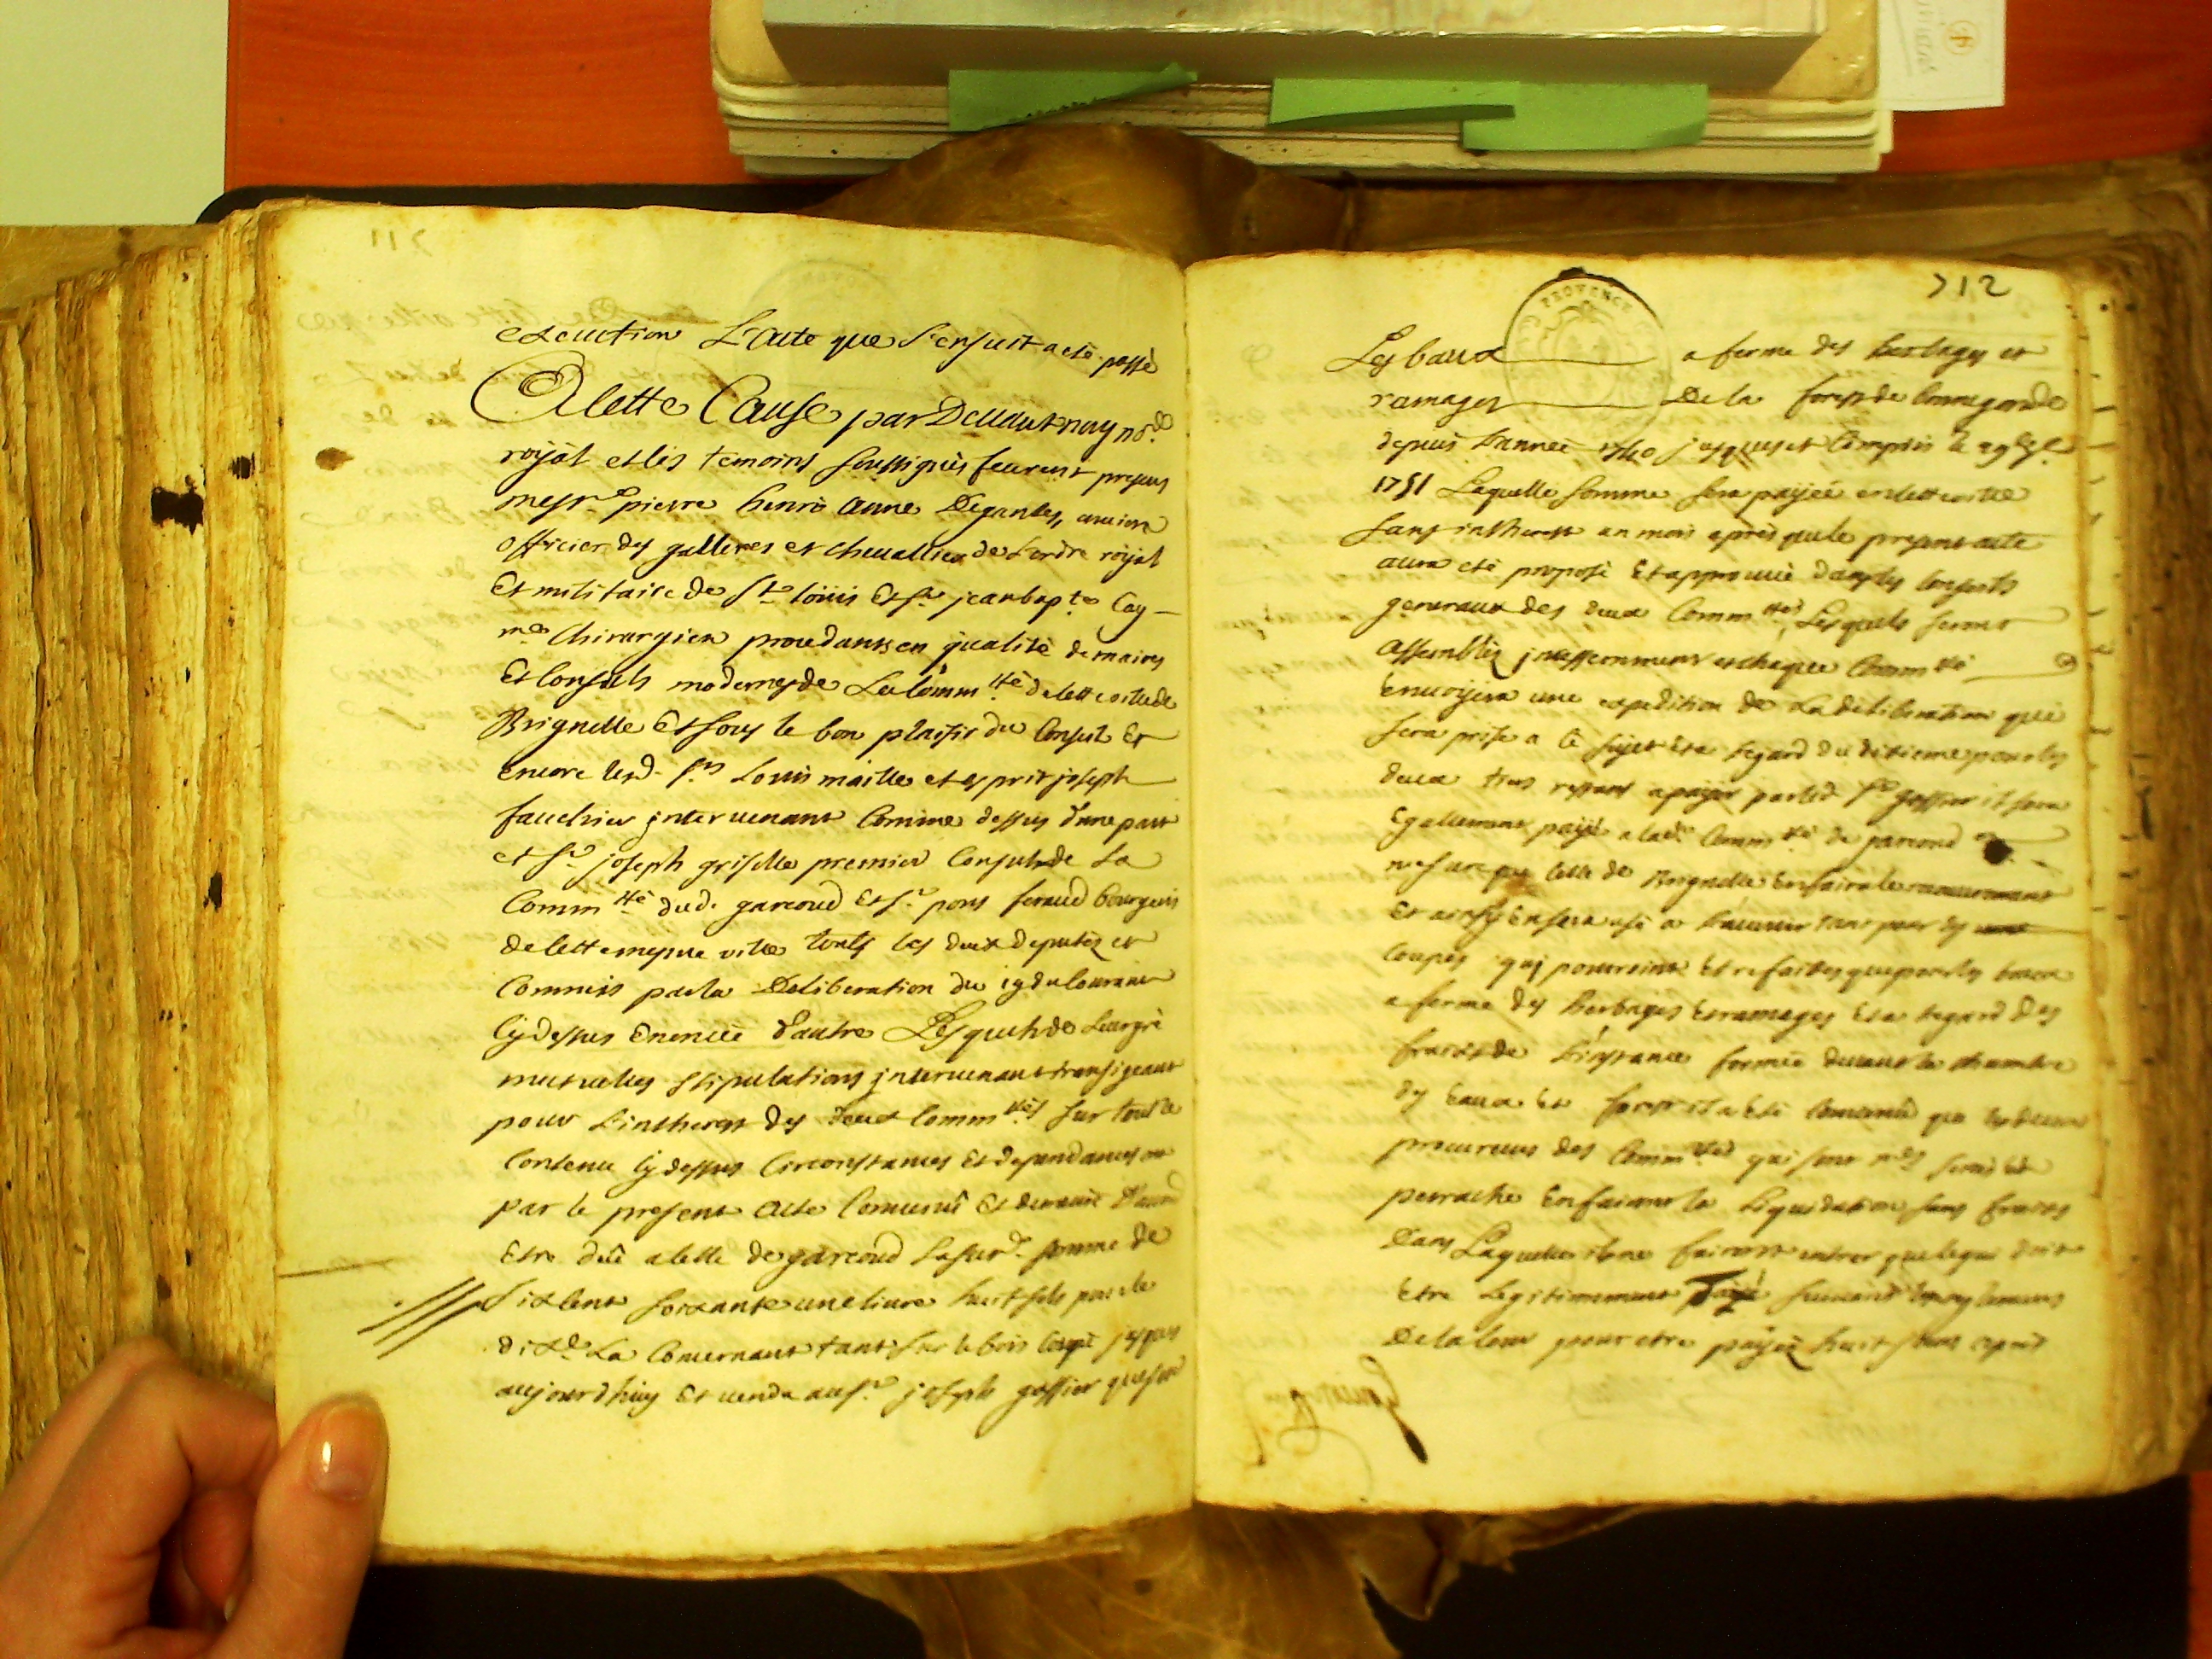 execution L'acte que s'ensuit a eté passé
A Cette Cause par Devant nous no.re
royal et les temoins soussignés feurent presens
mess.re pierre henri Anne Degantes, ancien
officier des galleres et chevallier de L'ordre royal
Et militaire de S.t Loüis Et s.r jean bap.te Cay
m.e Chirurgien procedants en qualité de maires
Et Consuls modernes de La Comm.té de Cette ville de
Brignolle Et sous le bon plaisir du Conseil Et
encore lesd. s.rs Louis maille et esprit joseph
fauchier intervenant Comme dessus d'une part
et s.r joseph griselle premier Consul de La
Comm.té dud. gareoud Et s.r pons feraud bourgeois
de Cette mesme ville touts les deux deputés et
Commis par la Deliberation du 19 du Courant
Cy dessus Enoncée d'autre Lesquels de Leur gré
mutuelles stipulations intervenant transigeant
pour L'intherest des deux Comm.tés sur tout le
Contenu Cy dessus Circonstances Et dependances
par le present Acte Convenû Et demeuré d'acord
Etre deüe a Celle de gareoud La sus.d somme de
six Cent soixante une livre huit sols pour le
dix.e La Concernant tant sur le bois Coupé jusques
aujourdhuy Et vendu au s.r joseph gassier que sur
712
PROVENCE
Les baux a ferme des herbages et
ramages De la forest de Connegarde
depuis L'année 1740 jusques et Compris le
1751 Laquelle somme sera payée en Cette ville
sans intherest un mois apres que le present acte
aura eté proposé Et approuvé dans les Conseils
generaux des deux Comm.tés Lesquels seront
Assemblés incessemment et chaque Comm.té
Envoyera une expedition de La deliberation que
sera prise a Ce sujet Et a l'egard du dixieme pour les
deux tiers restant a payer par led. s.r gassier il sera
Egallement payé a lad.e Comm.té de gareoud a
mesure que Celle de Brignolle En faira le recouvrement
Et ainsy En sera usé a L'avenir tant pour les
Coupes qui pourroint Etre faites que pour les baux
a ferme des herbages Et ramages Et a l'egard Des
fraix de L'instance formée devant la chambre
des Eaux Et forest il a Eté Convenû que les deux
procureurs des Comm.tés qui sont m.es
perrache En fairont la Liquidation sans fraix
Dans Laquelle ils ne fairont entrer que Ce qui doit
Etre Legitimement suivant les reglemens
De la Cour pour etre payée huit jours apres